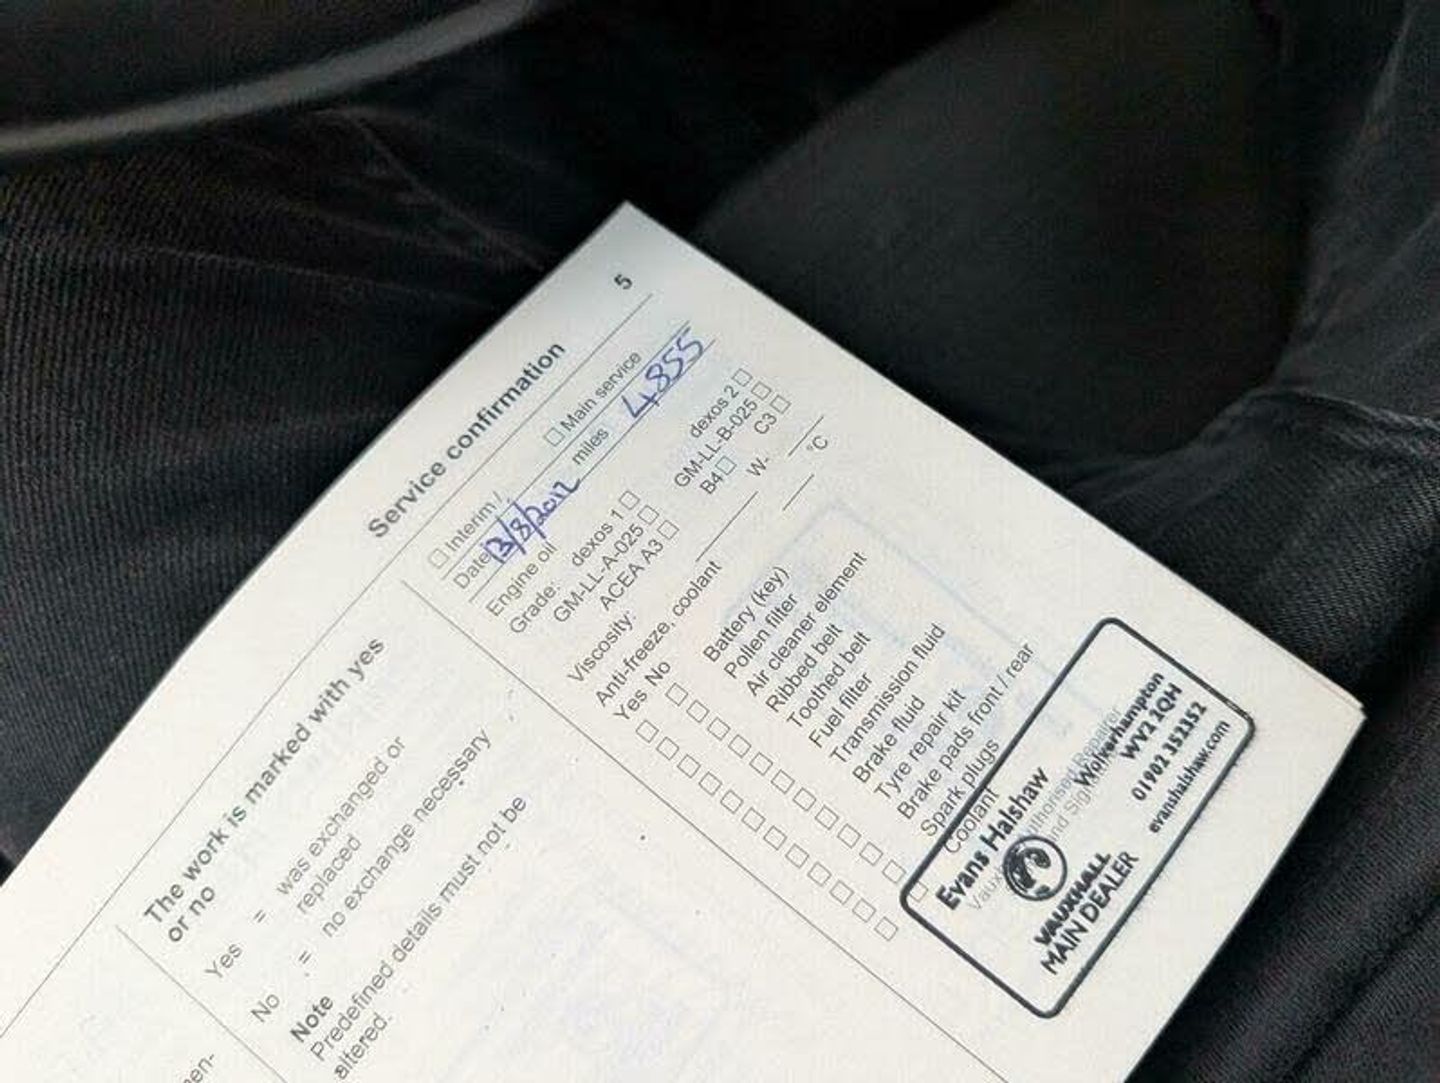 5
Service confirmation
Interim / Main service
Date 13/8/2012 miles 4,855
Engine oil
Grade: dexos 1 dexos 2
GM-LL-A-025 GM-LL-B-025
ACEA A3 B4 C3
Viscosity: W-
Anti-freeze, coolant °C
Yes No
Battery (key)
Pollen filter
Air cleaner element
Ribbed belt
Toothed belt
Fuel filter
Transmission fluid
Brake fluid
Tyre repair kit
Brake pads front / rear
Spark plugs
Coolant
Evans Halshaw
Wolverhampton
WV2 2QH
01902 352352
evanshalshaw.com
VAUXHALL
MAIN DEALER
The work is marked with yes
or no
Yes = was exchanged or
replaced
No = no exchange necessary
Note
Predefined details must not be
altered.